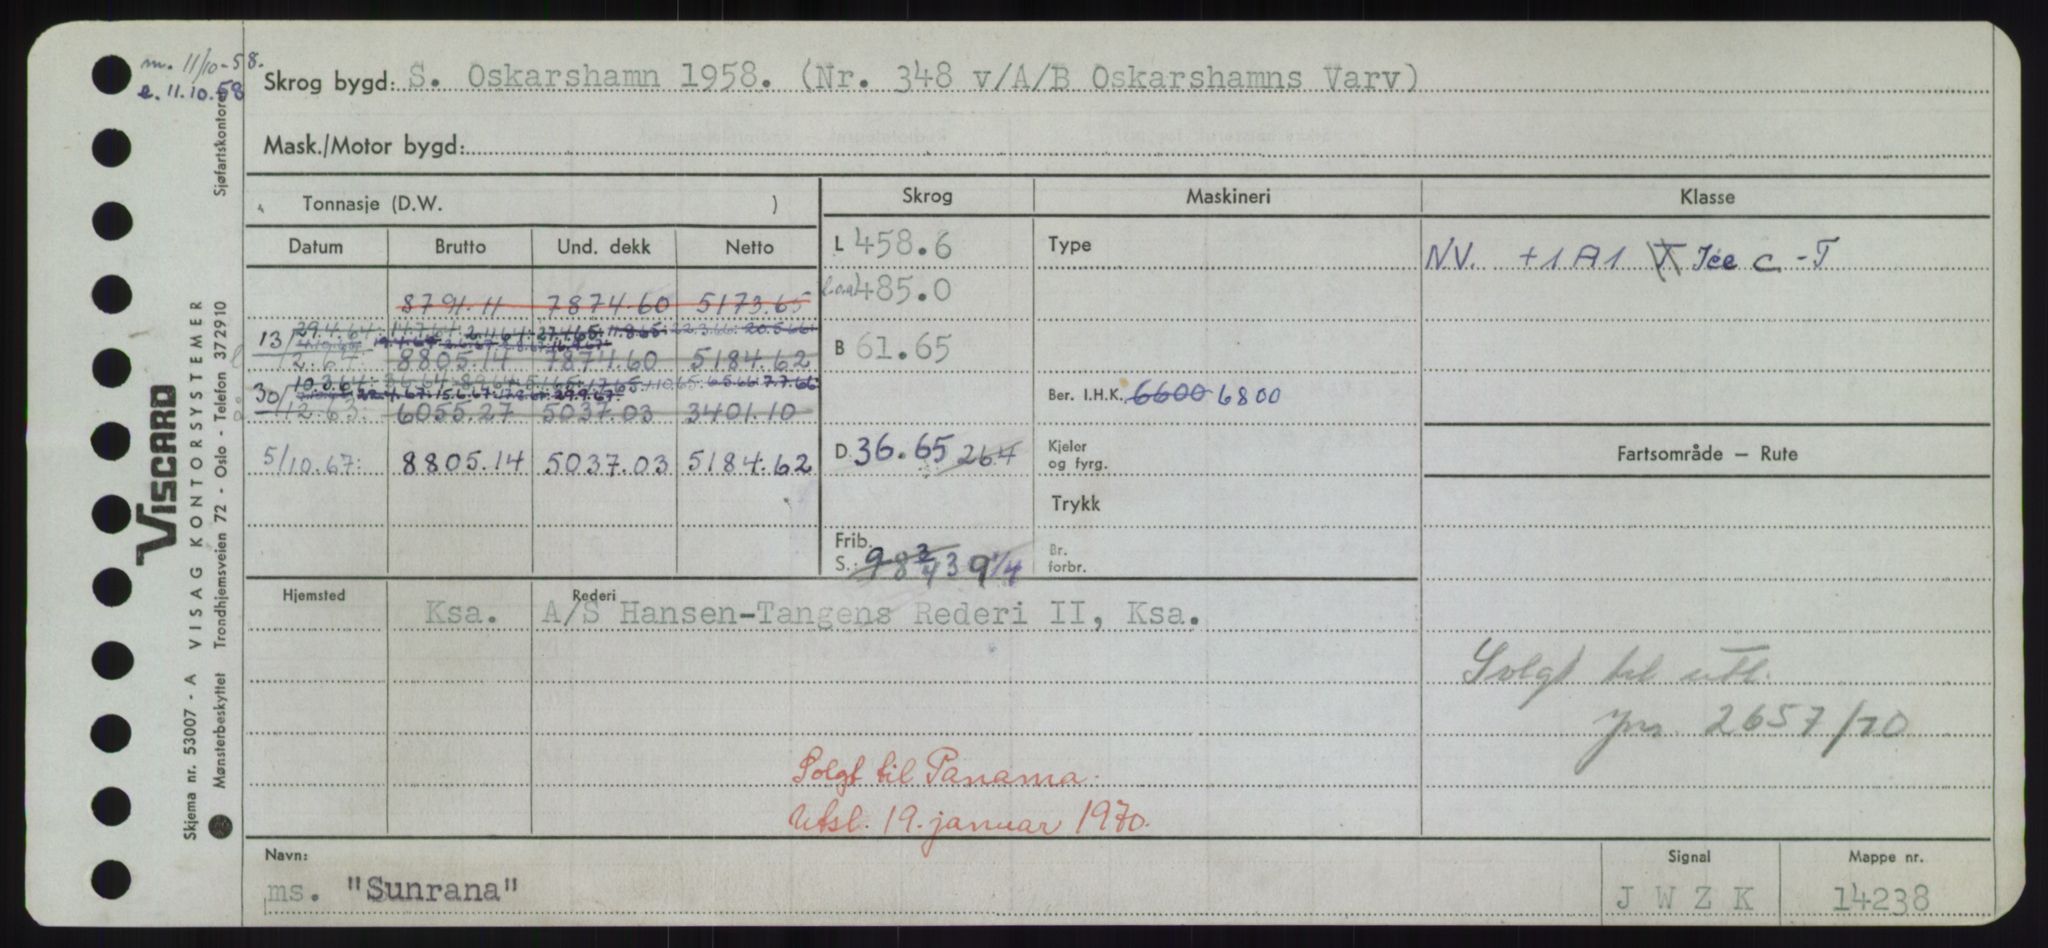 m. 11/10-58.
e. 11.10.58
Skrog bygd: S. Oskarshamn 1958. (Nr. 348 v/A/B Oskarshamns Varv)
Mask./Motor bygd:
Tonnasje (D.W. )
Datum Brutto Und. dekk Netto
8791.11 7874.60 5173.65
13/2.67 8805.14 7874.60 5184.62
30/12.63: 6055.27 5037.03 3401.10
5/10.67: 8805.14 5037.03 5184.62
Skrog
L 458.6
l.o.a. 485.0
B 61.65
D 36.65 26.4
Frib.
S.: 98 3/4 39 1/4
Maskineri
Type
Ber. I.H.K. 6600 6800
Kjeler
og fyrg.
Trykk
Br.
forbr.
Klasse
NV. +1A1 Ice C -T
Fartsområde – Rute
Solgt til utl.
2657/70
Hjemsted Rederi
Ksa. A/S Hansen-Tangens Rederi II, Ksa.
Solgt til Panama.
Utsl. 19. januar 1970.
Navn:
ms. "Sunrana"
Signal
J W Z K
Mappe nr.
14238
Sjøfartskontoret
VISCARD
VISAG KONTORSYSTEMER
Skjema nr. 53007 - A
Mønsterbeskyttet Trondhjemsveien 72 - Oslo - Telefon 372910